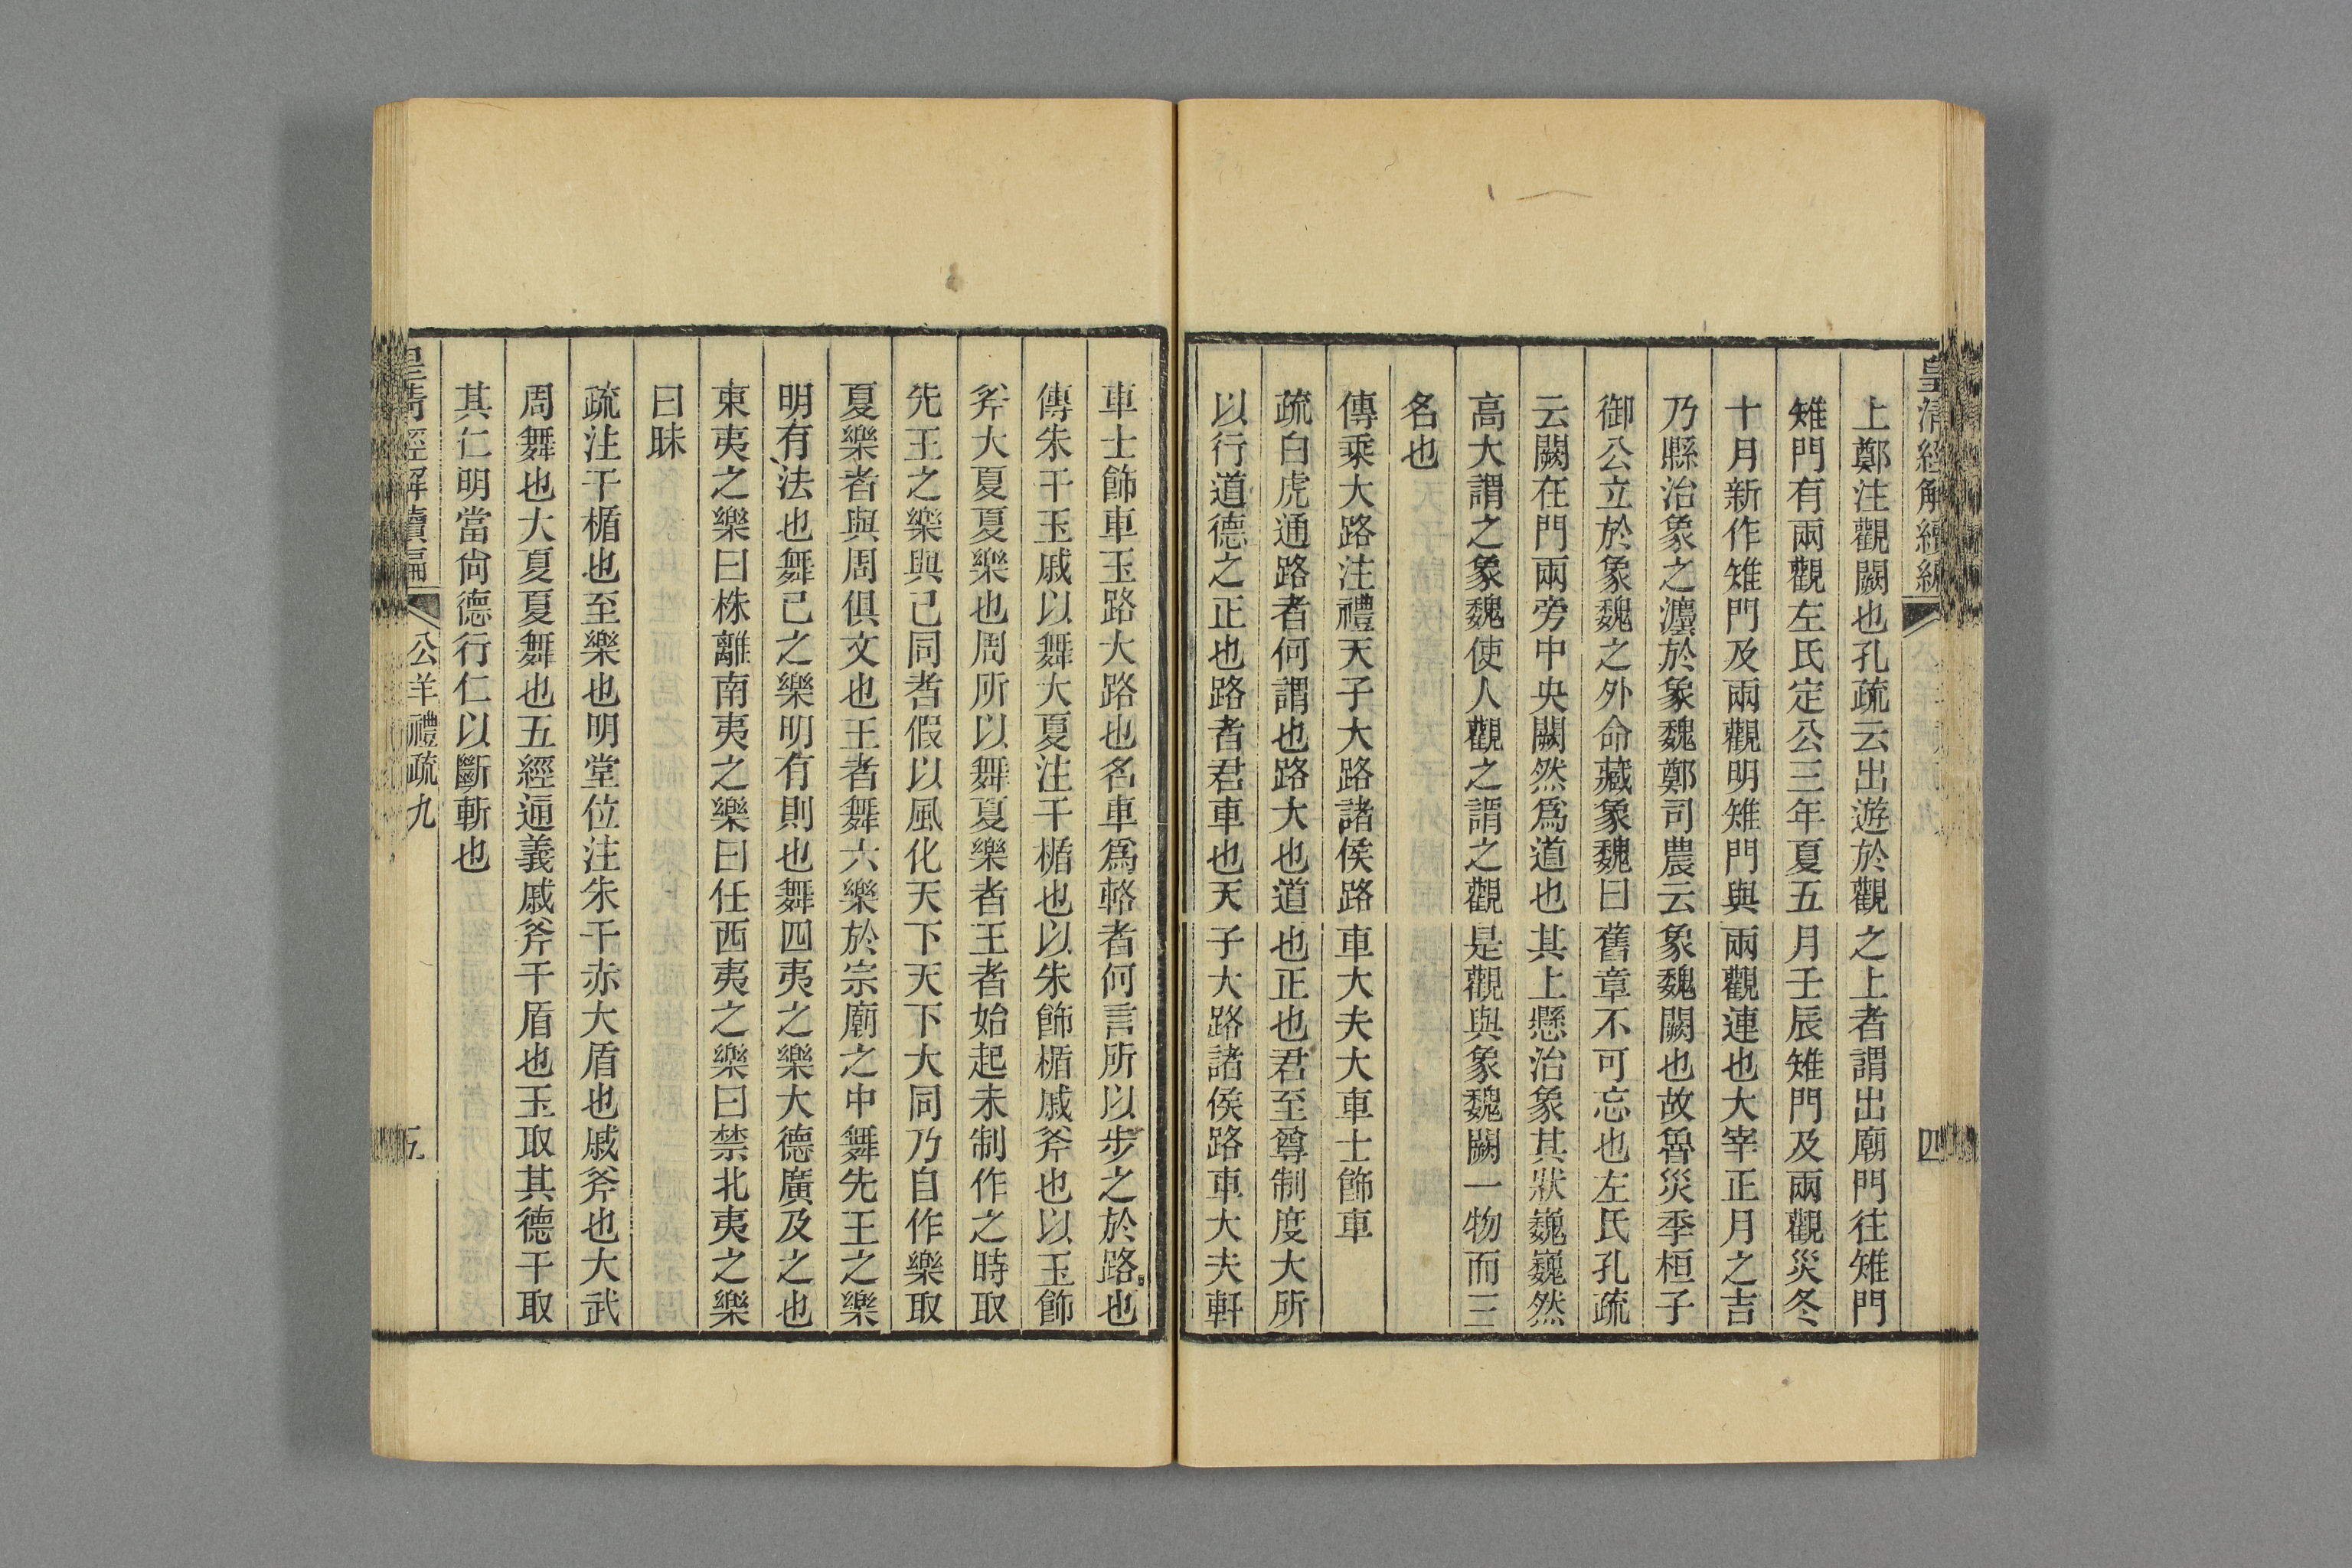 皇清經解續編
四
上鄭注觀闕也孔疏云出遊於觀之上者謂出廟門往雉門
雉門有兩觀左氏定公三年夏五月壬辰雉門及兩觀災冬
十月新作雉門及兩觀明雉門與兩觀連也大宰正月之吉
乃縣治象之灋於象魏鄭司農云象魏闕也故魯災季桓子
御公立於象魏之外命藏象魏曰舊章不可忘也左氏孔疏
云闕在門兩旁中央闕然爲道也其上懸治象其狀巍巍然
高大謂之象魏使人觀之謂之觀是觀與象魏闕一物而三
名也
傳乘大路注禮天子大路諸侯路車大夫大車士飾車
疏白虎通路者何謂也路大也道也正也君至尊制度大所
以行道德之正也路者君車也天子大路諸侯路車大夫軒
車士飾車玉路大路也名車爲輅者何言所以步之於路也
傳朱干玉戚以舞大夏注干楯也以朱飾楯戚斧也以玉飾
斧大夏夏樂也周所以舞夏樂者王者始起未制作之時取
先王之樂與己同者假以風化天下天下大同乃自作樂取
夏樂者與周俱文也王者舞六樂於宗廟之中舞先王之樂
明有法也舞己之樂明有則也舞四夷之樂大德廣及之也
東夷之樂曰株離南夷之樂曰任西夷之樂曰禁北夷之樂
曰昧
疏注干楯也至樂也明堂位注朱干赤大盾也戚斧也大武
周舞也大夏夏舞也五經通義戚斧干盾也玉取其德干取
其仁明當尙德行仁以斷斬也
皇清經解續編
公羊禮疏九
五